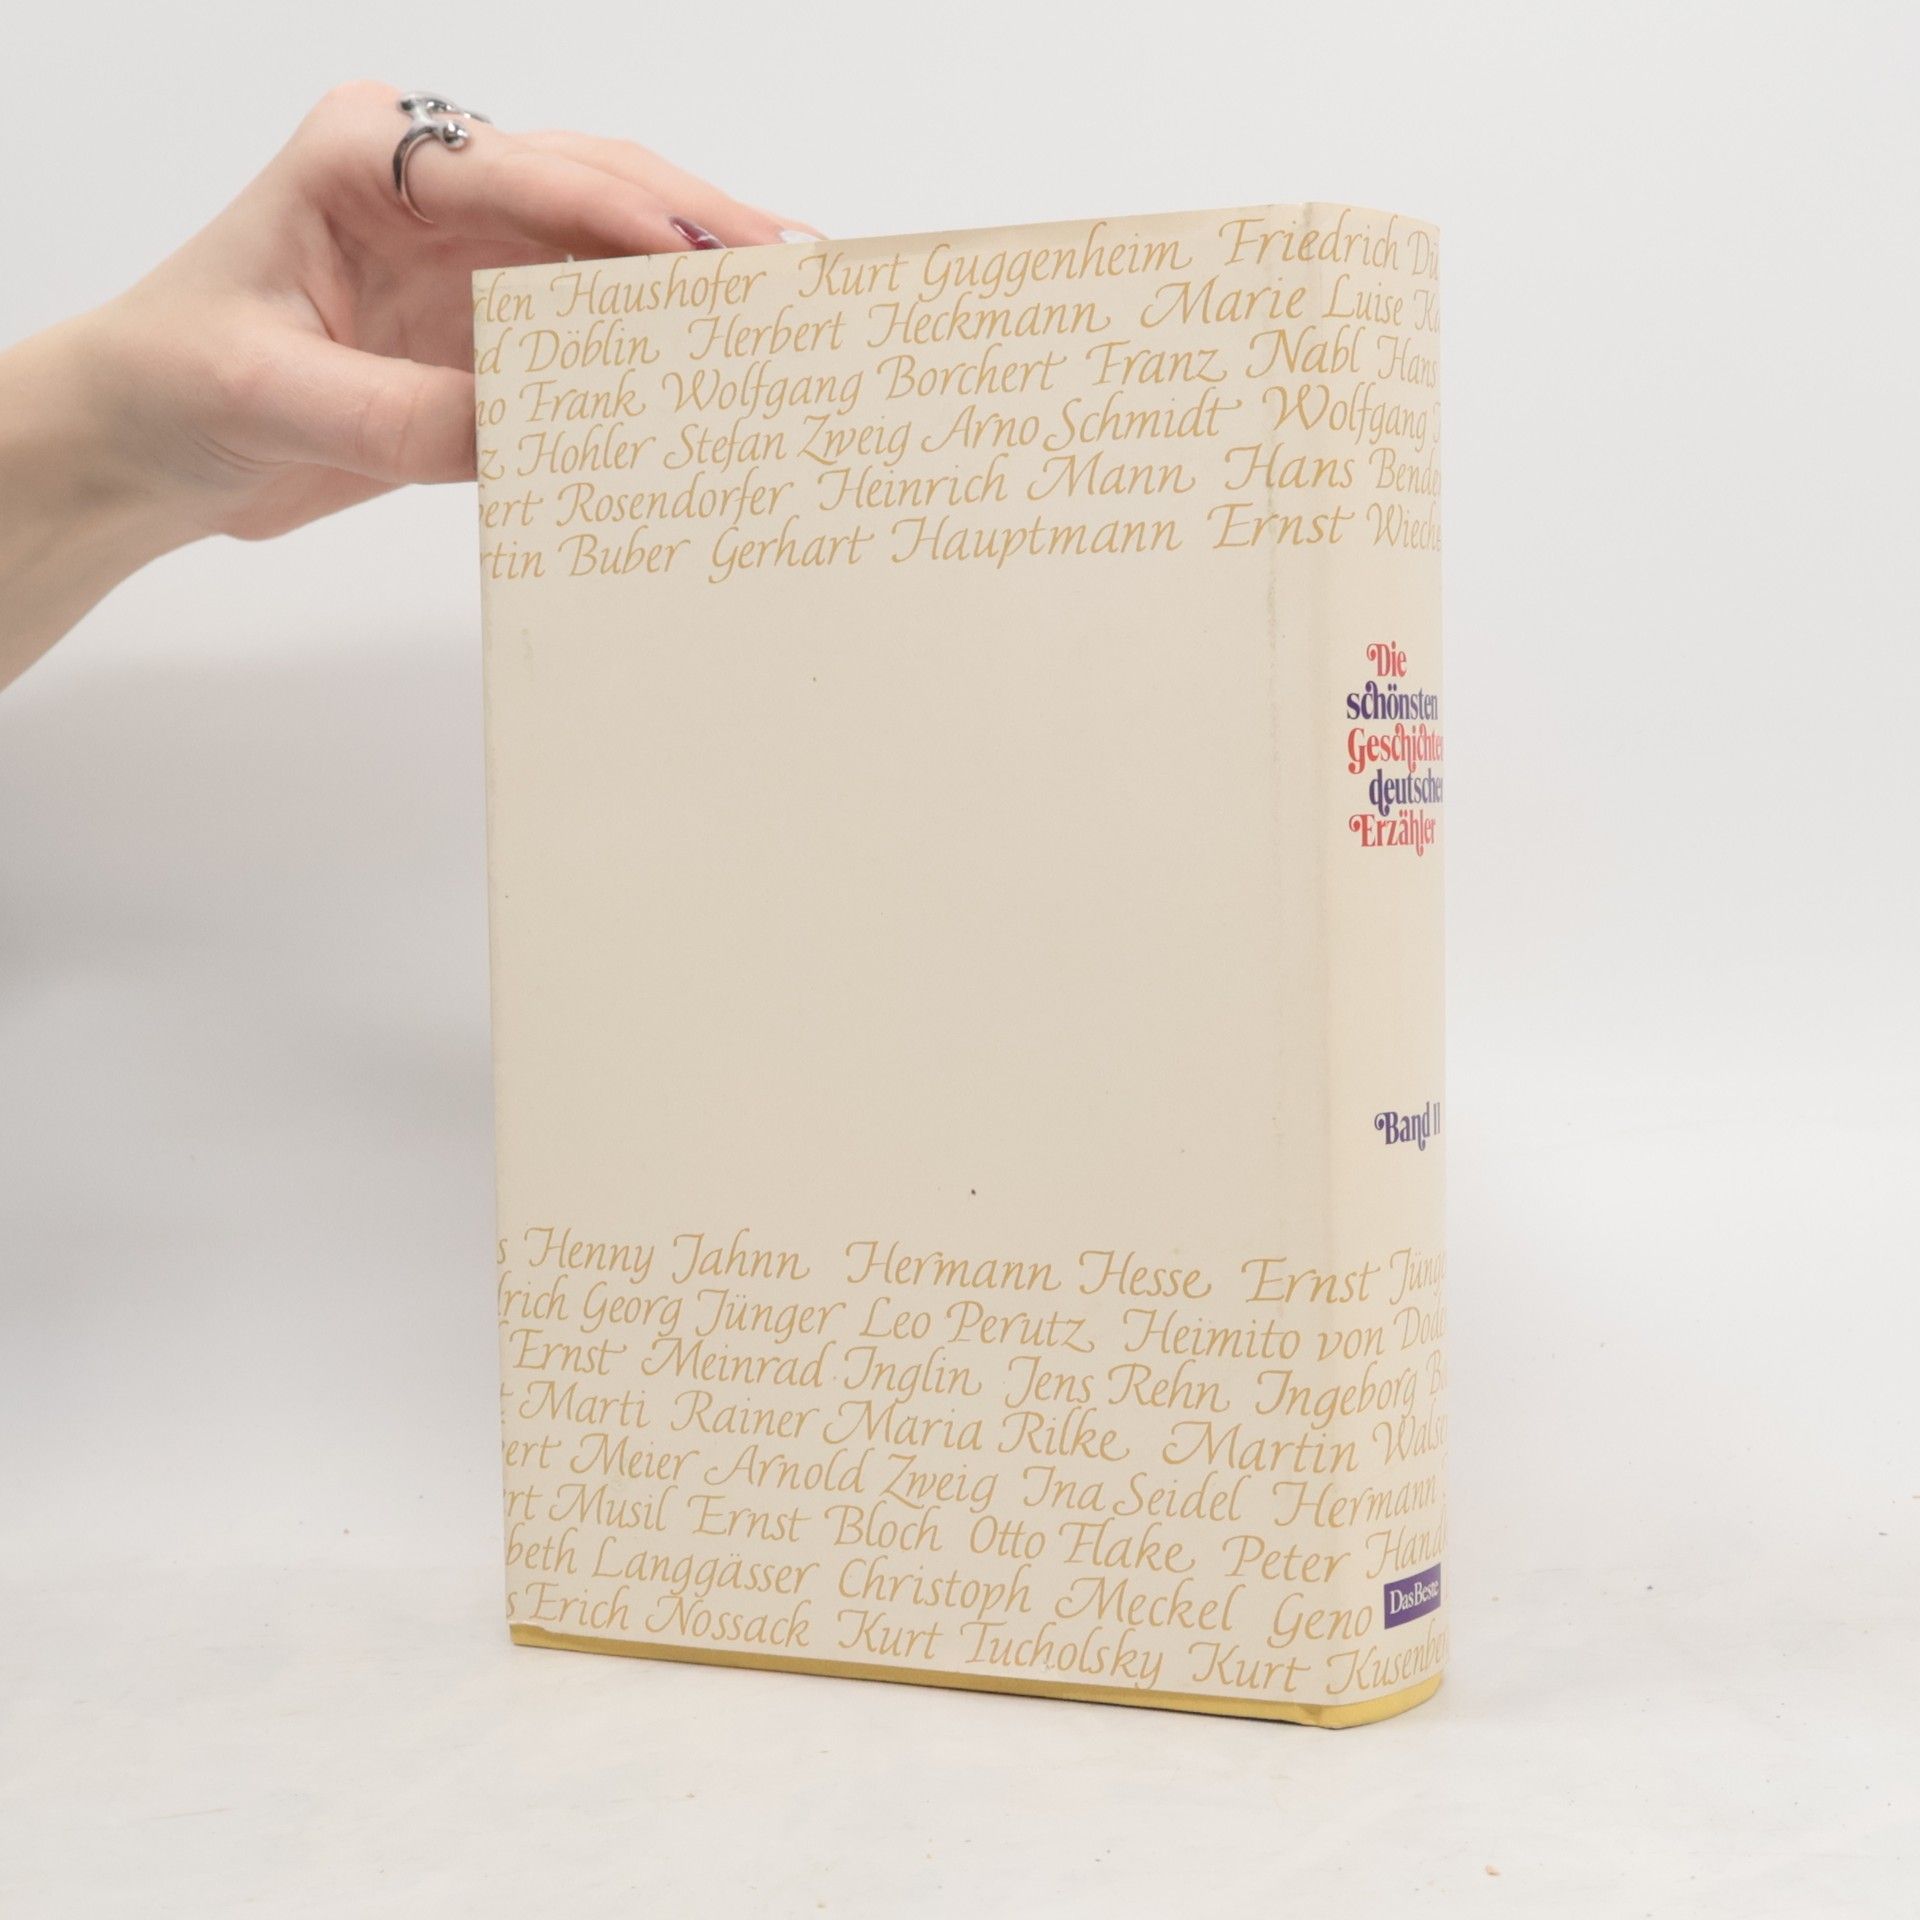 rlen Haushofer Kurt Guggenheim Friedrich Dü
d Döblin Herbert Heckmann Marie Luise Ka
no Frank Wolfgang Borchert Franz Nabl Hans
z Hohler Stefan Zweig Arno Schmidt Wolfgang
bert Rosendorfer Heinrich Mann Hans Bende
rtin Buber Gerhart Hauptmann Ernst Wieche
Die
schönsten
Geschichten
deutscher
Erzähler
Band II
s Henny Jahnn Hermann Hesse Ernst Jünge
drich Georg Jünger Leo Perutz Heimito von Dode
Ernst Meinrad Inglin Jens Rehn Ingeborg Ba
t Marti Rainer Maria Rilke Martin Walse
bert Meier Arnold Zweig Ina Seidel Hermann
rt Musil Ernst Bloch Otto Flake Peter Handk
beth Langgässer Christoph Meckel Geno
Das Beste
s Erich Nossack Kurt Tucholsky Kurt Kusenbe